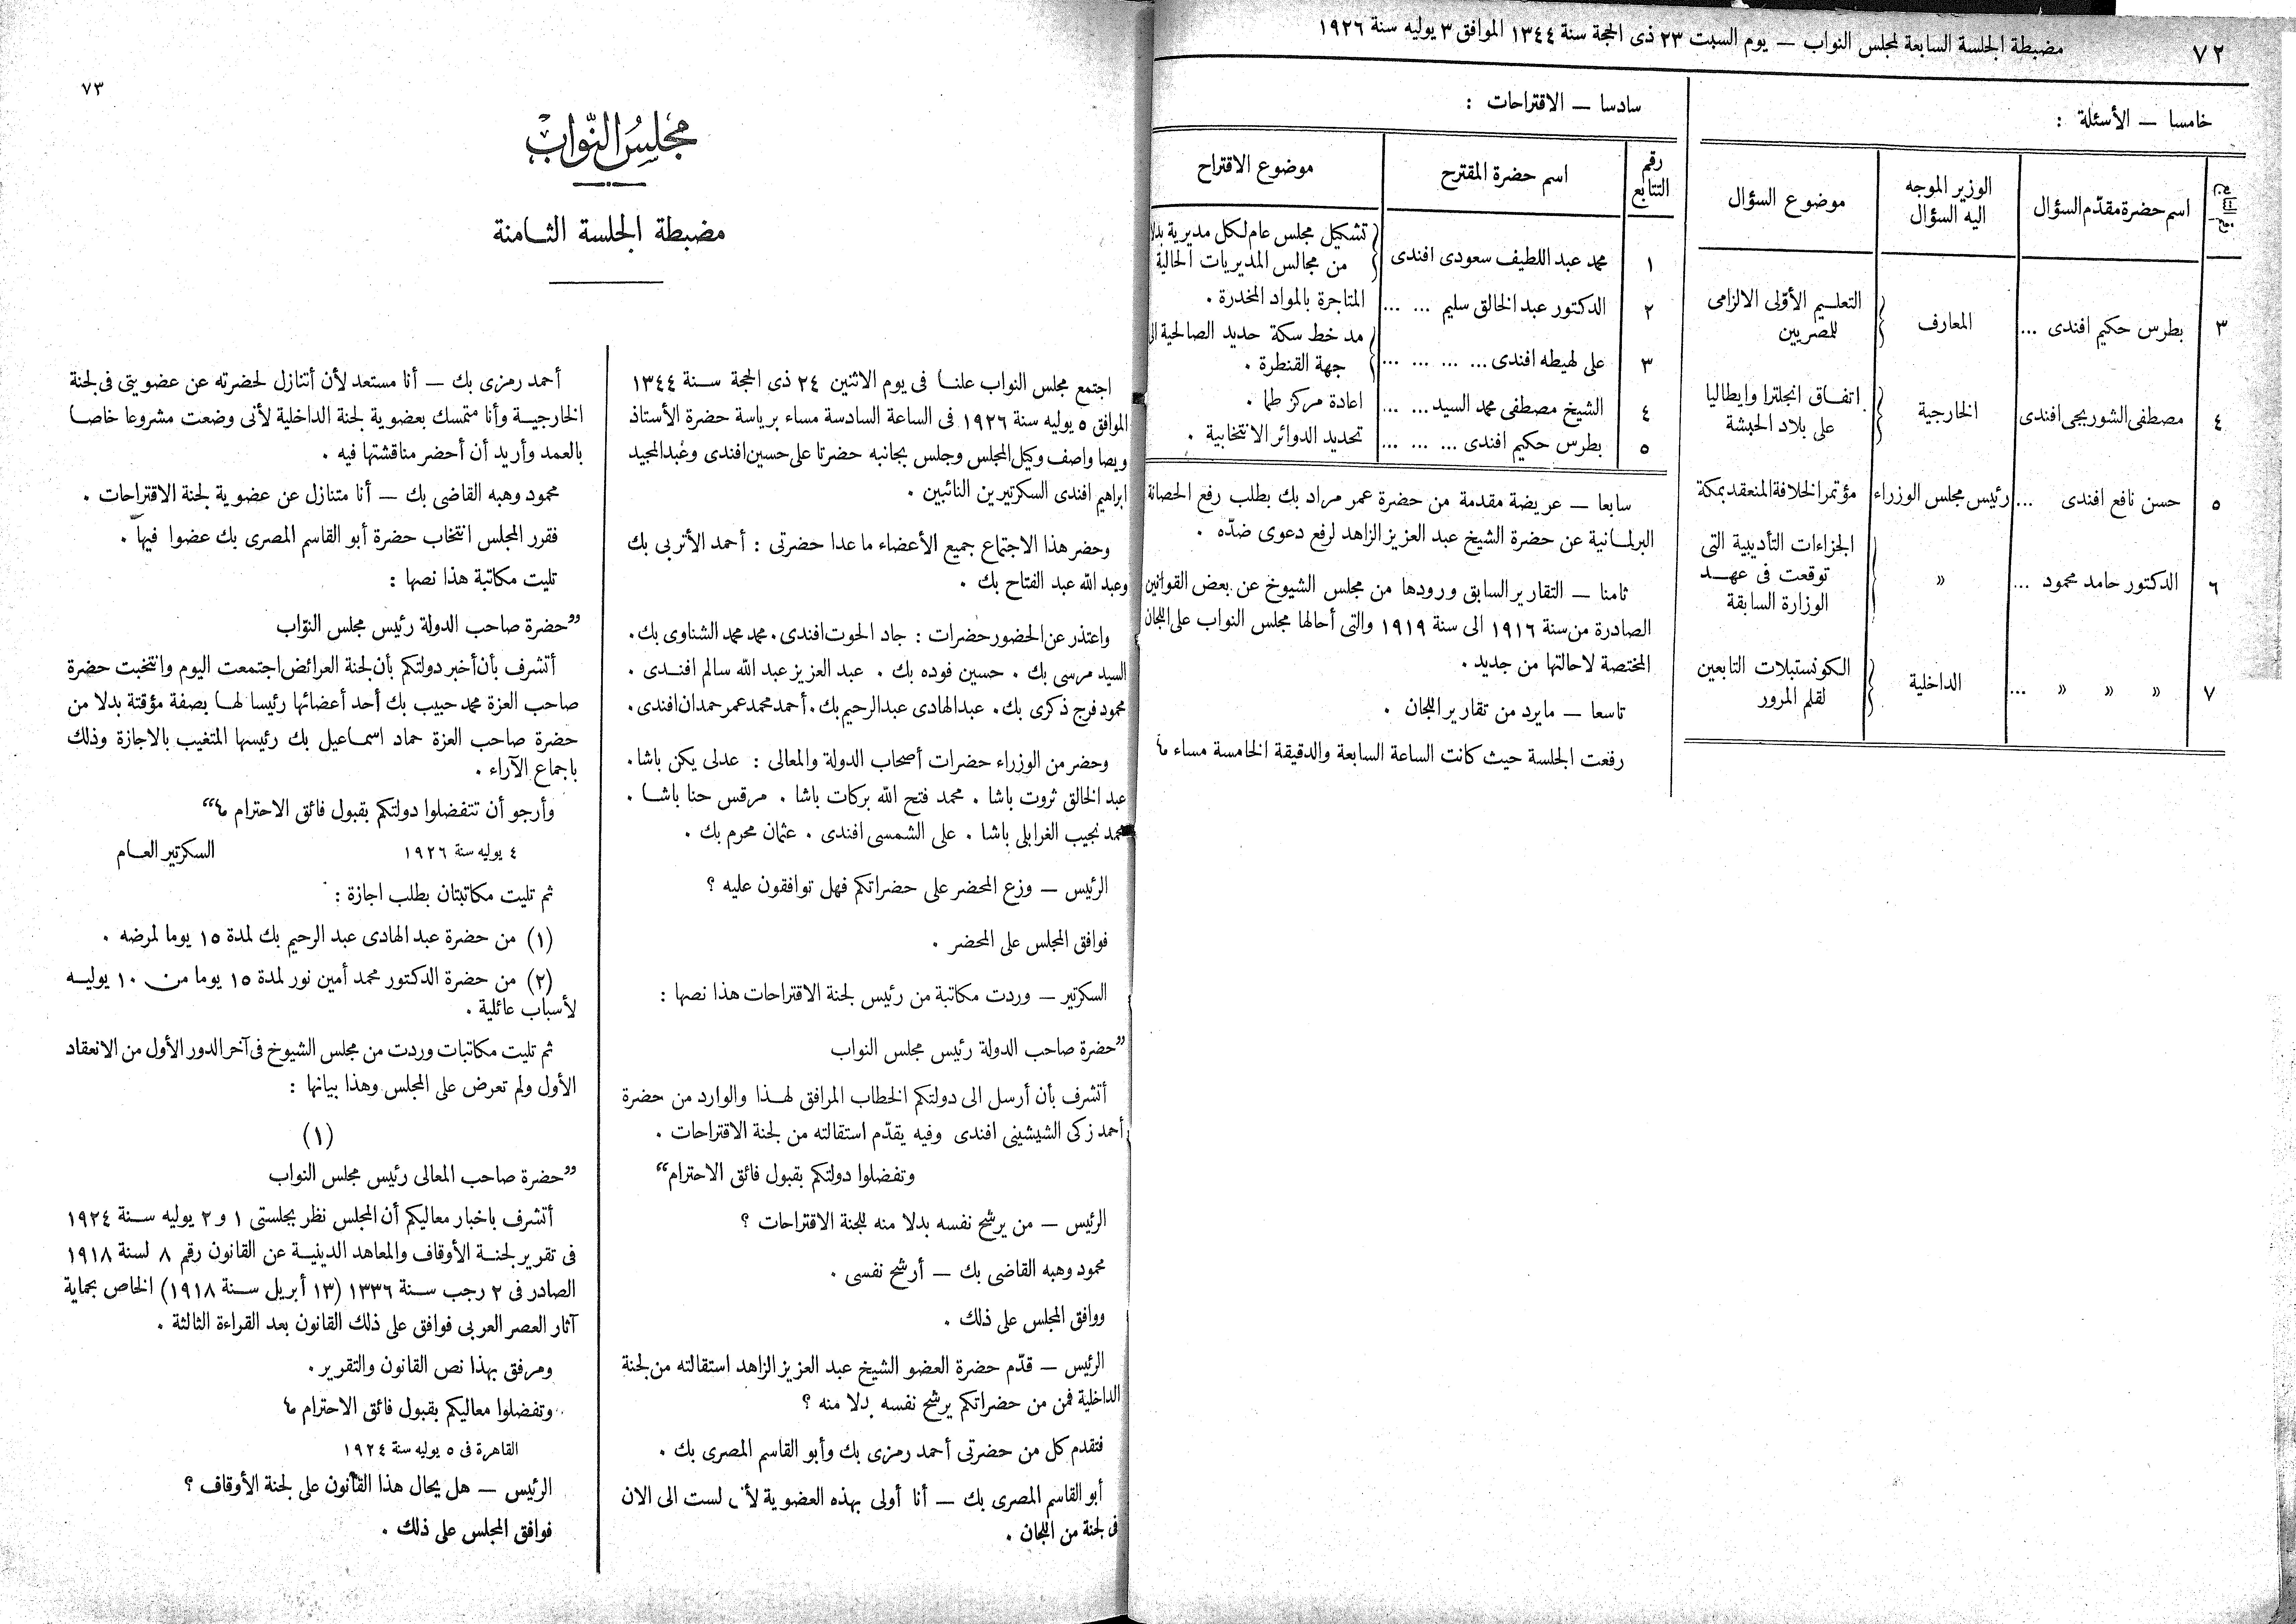 ٧٢
مضبطة الجلسة السابعة لمجلس النواب — يوم السبت ٢٣ ذى الحجة سنة ١٣٤٤ الموافق ٣ يوليه سنة ١٩٢٦
خامسا — الأسئلة :
رقم التتابع | اسم حضرة مقدّم السؤال | الوزير الموجه اليه السؤال | موضوع السؤال
٣ | بطرس حكيم افندى ... | المعارف | التعليم الأوّلى الالزامى للمصريين
٤ | مصطفى الشوربجى افندى | الخارجية | اتفاق انجلترا وايطاليا على بلاد الحبشة
٥ | حسن نافع افندى ... | رئيس مجلس الوزراء | مؤتمر الخلافة المنعقد بمكة
٦ | الدكتور حامد محمود ... | » | الجزاءات التأديبية التى توقعت فى عهد الوزارة السابقة
٧ | » » » ... | الداخلية | الكونستبلات التابعين لقلم المرور
سادسا — الاقتراحات :
رقم التتابع | اسم حضرة المقترح | موضوع الاقتراح
١ | محمد عبد اللطيف سعودى افندى | تشكيل مجلس عام لكل مديرية بدلا من مجالس المديريات الحالية
٢ | الدكتور عبد الخالق سليم ... ... | المتاجرة بالمواد المخدرة .
٣ | على لهيطه افندى ... ... ... ... | مد خط سكة حديد الصالحية الى جهة القنطرة .
٤ | الشيخ مصطفى محمد السيد ... ... | اعادة مركز طما .
٥ | بطرس حكيم افندى ... ... ... | تحديد الدوائر الانتخابية .
سابعا — عريضة مقدمة من حضرة عمر مراد بك بطلب رفع الحصانة
البرلمانية عن حضرة الشيخ عبد العزيز الزاهد لرفع دعوى ضدّه .
ثامنا — التقارير السابق ورودها من مجلس الشيوخ عن بعض القوانين
الصادرة من سنة ١٩١٦ الى سنة ١٩١٩ والتى أحالها مجلس النواب على اللجان
المختصة لاحالتها من جديد .
تاسعا — مايرد من تقارير اللجان .
رفعت الجلسة حيث كانت الساعة السابعة والدقيقة الخامسة مساء
٧٣
مجلس النوّاب
مضبطة الجلسة الثامنة
اجتمع مجلس النواب علنا فى يوم الاثنين ٢٤ ذى الحجة سنة ١٣٤٤
الموافق ٥ يوليه سنة ١٩٢٦ فى الساعة السادسة مساء برياسة حضرة الأستاذ
ويصا واصف وكيل المجلس وجلس بجانبه حضرتا على حسين افندى وعبد المجيد
ابراهيم افندى السكرتيرين النائبين .
وحضر هذا الاجتماع جميع الأعضاء ما عدا حضرتى : أحمد الأتربى بك
وعبد الله عبد الفتاح بك .
واعتذر عن الحضور حضرات : جاد الحوت افندى . محمد محمد الشناوى بك .
السيد مرسى بك . حسين فوده بك . عبد العزيز عبد الله سالم افندى .
محمود فرج ذكرى بك . عبد الهادى عبد الرحيم بك . أحمد محمد عمر حمدان افندى .
وحضر من الوزراء حضرات أصحاب الدولة والمعالى : عدلى يكن باشا .
عبد الخالق ثروت باشا . محمد فتح الله بركات باشا . مرقس حنا باشا .
محمد نجيب الغرابلى باشا . على الشمسى افندى . عثمان محرم بك .
الرئيس — وزع المحضر على حضراتكم فهل توافقون عليه ؟
فوافق المجلس على المحضر .
السكرتير — وردت مكاتبة من رئيس لجنة الاقتراحات هذا نصها :
”حضرة صاحب الدولة رئيس مجلس النواب
أتشرف بأن أرسل الى دولتكم الخطاب المرافق لهذا والوارد من حضرة
أحمد زكى الشيشينى افندى وفيه يقدّم استقالته من لجنة الاقتراحات .
وتفضلوا دولتكم بقبول فائق الاحترام“
الرئيس — من يرشح نفسه بدلا منه للجنة الاقتراحات ؟
محمود وهبه القاضى بك — أرشح نفسى .
ووافق المجلس على ذلك .
الرئيس — قدّم حضرة العضو الشيخ عبد العزيز الزاهد استقالته من لجنة
الداخلية فمن من حضراتكم يرشح نفسه بدلا منه ؟
فتقدم كل من حضرتى أحمد رمزى بك وأبو القاسم المصرى بك .
أبو القاسم المصرى بك — أنا أولى بهذه العضوية لأنى لست الى الان
فى لجنة من اللجان .
أحمد رمزى بك — أنا مستعد لأن أتنازل لحضرته عن عضويتى فى لجنة
الخارجية وأنا متمسك بعضوية لجنة الداخلية لأنى وضعت مشروعا خاصا
بالعمد وأريد أن أحضر مناقشتها فيه .
محمود وهبه القاضى بك — أنا متنازل عن عضوية لجنة الاقتراحات .
فقرر المجلس انتخاب حضرة أبو القاسم المصرى بك عضوا فيها .
تليت مكاتبة هذا نصها :
”حضرة صاحب الدولة رئيس مجلس النوّاب
أتشرف بأن أخبر دولتكم بأن لجنة العرائض اجتمعت اليوم وانتخبت حضرة
صاحب العزة محمد حبيب بك أحد أعضائها رئيسا لها بصفة مؤقتة بدلا من
حضرة صاحب العزة حماد اسماعيل بك رئيسها المتغيب بالاجازة وذلك
باجماع الآراء .
وأرجو أن تتفضلوا دولتكم بقبول فائق الاحترام“
٤ يوليه سنة ١٩٢٦ السكرتير العام
ثم تليت مكاتبتان بطلب اجازة :
(١) من حضرة عبد الهادى عبد الرحيم بك لمدة ١٥ يوما لمرضه .
(٢) من حضرة الدكتور محمد أمين نور لمدة ١٥ يوما من ١٠ يوليه
لأسباب عائلية .
ثم تليت مكاتبات وردت من مجلس الشيوخ فى آخر الدور الأول من الانعقاد
الأول ولم تعرض على المجلس وهذا بيانها :
(١)
”حضرة صاحب المعالى رئيس مجلس النواب
أتشرف باخبار معاليكم أن المجلس نظر بجلستى ١ و ٢ يوليه سنة ١٩٢٤
فى تقرير لجنة الأوقاف والمعاهد الدينية عن القانون رقم ٨ لسنة ١٩١٨
الصادر فى ٢ رجب سنة ١٣٣٦ (١٣ أبريل سنة ١٩١٨) الخاص بحماية
آثار العصر العربى فوافق على ذلك القانون بعد القراءة الثالثة .
ومرفق بهذا نص القانون والتقرير .
وتفضلوا معاليكم بقبول فائق الاحترام
القاهرة فى ٥ يوليه سنة ١٩٢٤
الرئيس — هل يحال هذا القانون على لجنة الأوقاف ؟
فوافق المجلس على ذلك .